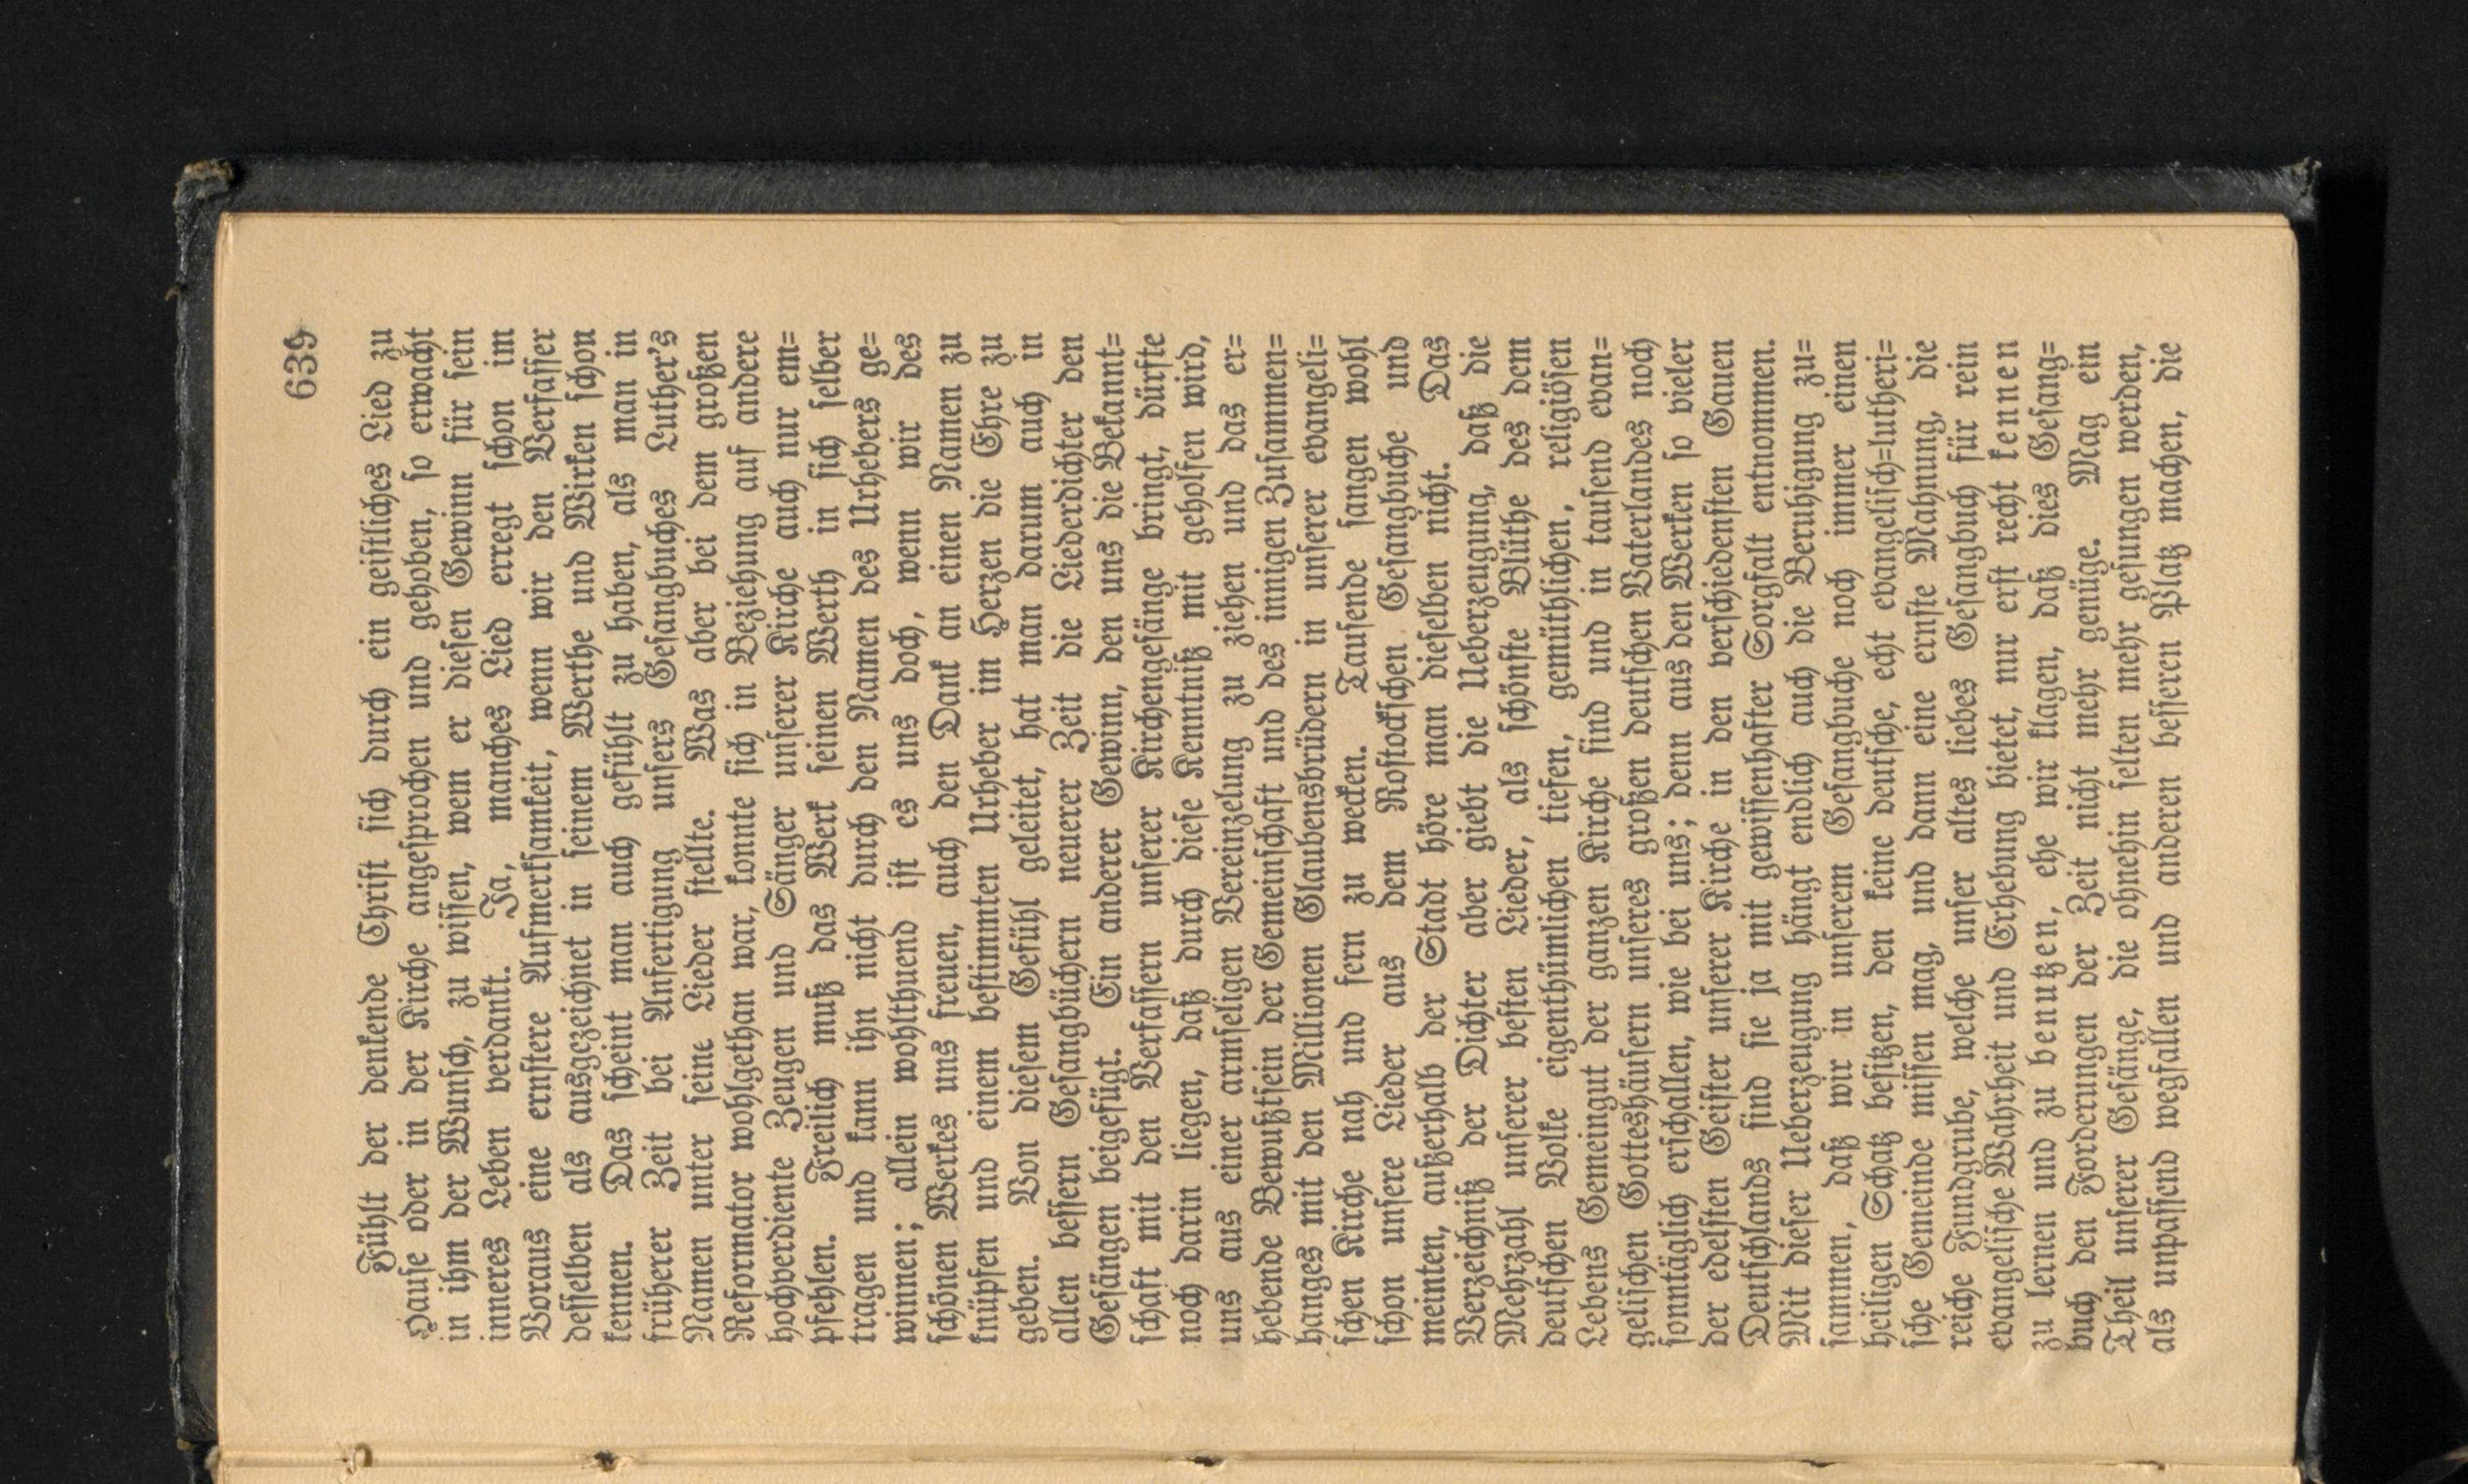 639
Fühlt der denkende Christ sich durch ein geistliches Lied zu
Hause oder in der Kirche angesprochen und gehoben, so erwacht
in ihm der Wunsch, zu wissen, wem er diesen Gewinn für sein
inneres Leben verdankt. Ja, manches Lied erregt schon im
Voraus eine ernstere Aufmerksamkeit, wenn wir den Verfasser
desselben als ausgezeichnet in seinem Werthe und Wirken schon
kennen. Das scheint man auch gefühlt zu haben, als man in
früherer Zeit bei Anfertigung unsers Gesangbuches Luther's
Namen unter seine Lieder stellte. Was aber bei dem großen
Reformator wohlgethan war, konnte sich in Beziehung auf andere
hochverdiente Zeugen und Sänger unserer Kirche auch nur em=
pfehlen. Freilich muß das Werk seinen Werth in sich selber
tragen und kann ihn nicht durch den Namen des Urhebers ge=
winnen; allein wohlthuend ist es uns doch, wenn wir des
schönen Werkes uns freuen, auch den Dank an einen Namen zu
knüpfen und einem bestimmten Urheber im Herzen die Ehre zu
geben. Von diesem Gefühl geleitet, hat man darum auch in
allen bessern Gesangbüchern neuerer Zeit die Liederdichter den
Gesängen beigefügt. Ein anderer Gewinn, den uns die Bekannt=
schaft mit den Verfassern unserer Kirchengesänge bringt, dürfte
noch darin liegen, daß durch diese Kenntniß mit geholfen wird,
uns aus einer armseligen Vereinzelung zu ziehen und das er=
hebende Bewußtsein der Gemeinschaft und des innigen Zusammen=
hanges mit den Millionen Glaubensbrüdern in unserer evangeli=
schen Kirche nah und fern zu wecken. Tausende sangen wohl
schon unsere Lieder aus dem Rostockschen Gesangbuche und
meinten, außerhalb der Stadt höre man dieselben nicht. Das
Verzeichniß der Dichter aber giebt die Ueberzeugung, daß die
Mehrzahl unserer besten Lieder, als schönste Blüthe des dem
deutschen Volke eigenthümlichen tiefen, gemüthlichen, religiösen
Lebens Gemeingut der ganzen Kirche sind und in tausend evan=
gelischen Gotteshäusern unseres großen deutschen Vaterlandes noch
sonntäglich erschallen, wie bei uns; denn aus den Werken so vieler
der edelsten Geister unserer Kirche in den verschiedensten Gauen
Deutschlands sind sie ja mit gewissenhafter Sorgfalt entnommen.
Mit dieser Ueberzeugung hängt endlich auch die Beruhigung zu=
sammen, daß wir in unserem Gesangbuche noch immer einen
heiligen Schatz besitzen, den keine deutsche, echt evangelisch=lutheri=
sche Gemeinde missen mag, und dann eine ernste Mahnung, die
reiche Fundgrube, welche unser altes liebes Gesangbuch für rein
evangelische Wahrheit und Erhebung bietet, nur erst recht kennen
zu lernen und zu benutzen, ehe wir klagen, daß dies Gesang=
buch den Forderungen der Zeit nicht mehr genüge. Mag ein
Theil unserer Gesänge, die ohnehin selten mehr gesungen werden,
als unpassend wegfallen und anderen besseren Platz machen, die